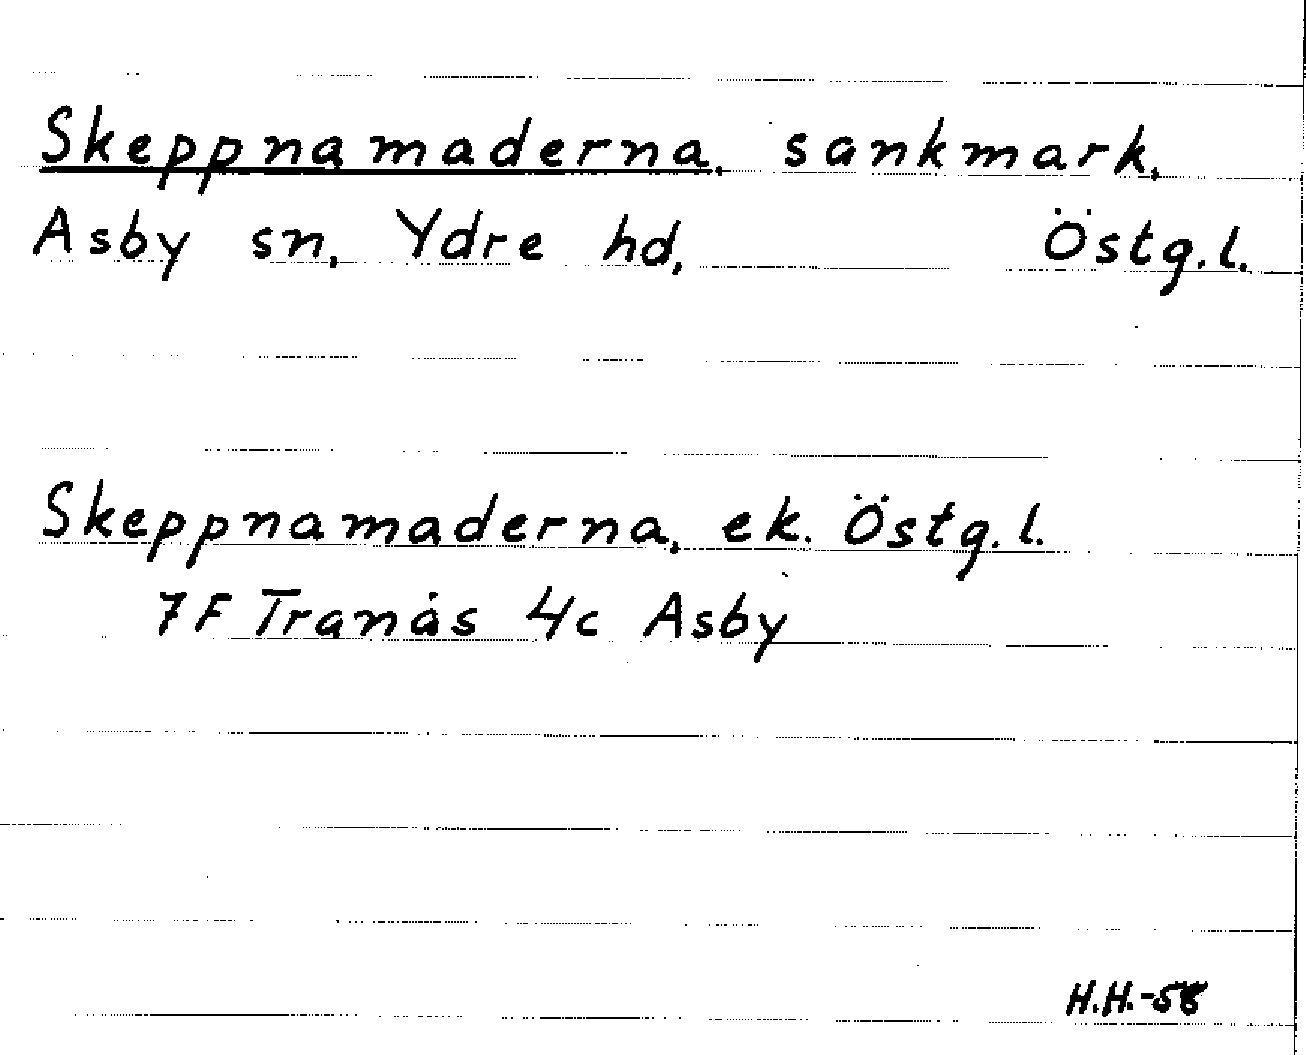 Skeppnamaderna, sankmark,
Asby sn, Ydre hd, Östg.l.
Skeppnamaderna, ek. Östg.l.
7F Tranås 4c Asby
H.H.-58